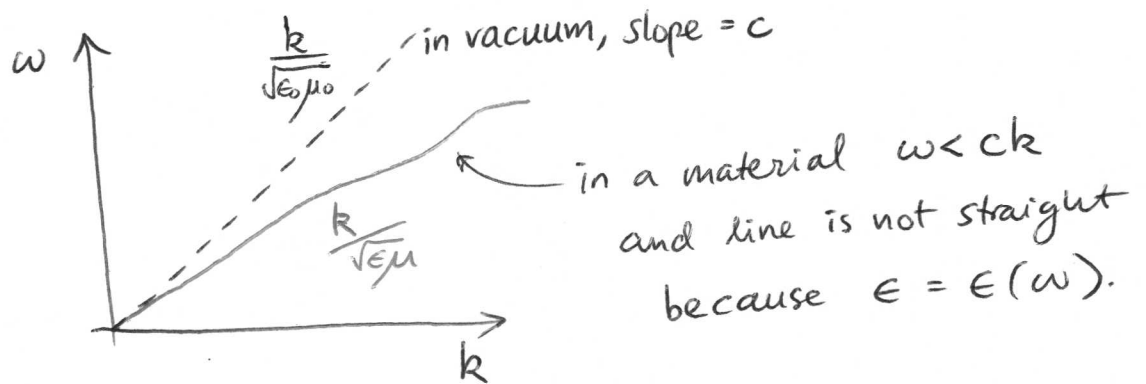 ω
k/√ε₀μ₀
in vacuum, slope = c
in a material ω < ck
and line is not straight
because ϵ = ϵ(ω).
k/√ϵμ
k